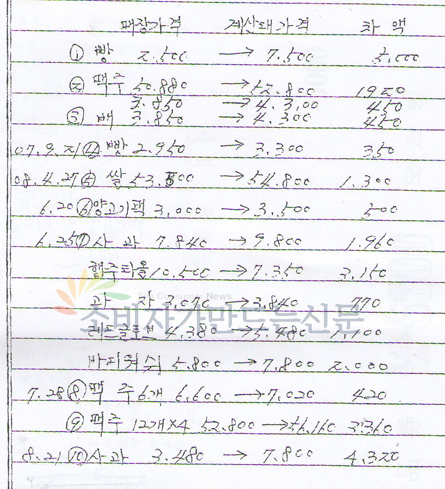 매장가격 계산대가격 차액
① 빵 2.500 → 7.500 5.000
② 맥주 50.880 → 52.800 1920
3.850 → 4.3,00 450
③ 배 3.850 → 4.300 450
④ 빵 2.950 → 3.300 350
08.4.27 ⑤ 쌀 53.500 → 54.800 1.300
6.20 ⑥ 양고기팩 3,000 → 3.500 500
6.25 ⑦ 사과 7.840 → 9.800 1.960
행주타올 10.500 → 7.350 3,150
과자 3,070 → 3.840 770
4.380 → 5.480 1,100
소비자가만드는신문
Consumer News
바디워쉬 5.800 → 7.800 2.000
7.28 ⑧ 맥주 6개 6.600 → 7.020 420
⑨ 맥주 12개×4 52.800 → 56.160 3.360
8.21 ⑩ 사과 3.480 → 7.800 4.320